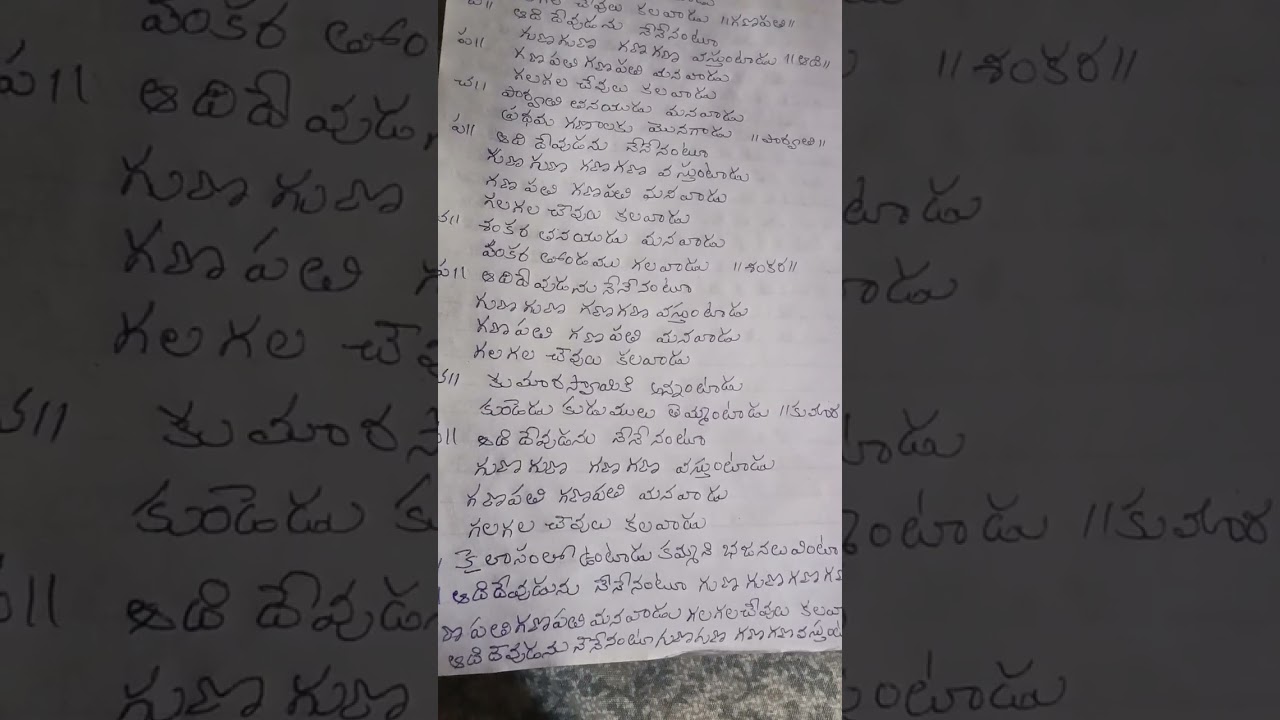 చెవులు కలవాడు ||గణపతి||
ఆది దేవుడను నేనేనంటూ
ప|| గుణగుణ గణగణ వస్తుంటాడు ||ఆది||
గణపతి గణపతి మనవాడు
గలగల చేవులు కలవాడు
చ|| పార్వతి తనయుడు మనవాడు
ప్రథమ గణాలకు మొనగాడు ||పార్వతి||
ప|| ఆది దేవుడను నేనేనంటూ
గుణగుణ గణగణ వస్తుంటాడు
గణపతి గణపతి మనవాడు
గలగల చెవులు కలవాడు
చ|| శంకర తనయుడు మనవాడు
వంకర తోండము గలవాడు ||శంకర||
ప|| ఆదిదేవుడను నేనేనంటూ
గుణగుణ గణగణ వస్తుంటాడు
గణపతి గణపతి మనవాడు
గలగల చెవులు కలవాడు
చ|| కుమారస్వామికి అన్నంటాడు
కుండెడు కుడుములు తెమ్మంటాడు ||కుమార
ప|| ఆది దేవుడను నేనేనంటూ
గుణగుణ గణగణ వస్తుంటాడు
గణపతి గణపతి మనవాడు
గలగల చెవులు కలవాడు
కైలాసంలో ఉంటాడు కమ్మని భజనలు వింటా
ఆదిదేవుడును నేనేనంటూ గుణగుణగణగణ
ణపతిగణపతిమనవాడు గలగలచేవులు కలవా
ఆదిదేవుడను నేనేనంటూ గుణగుణ గణగణవస్తుంటా